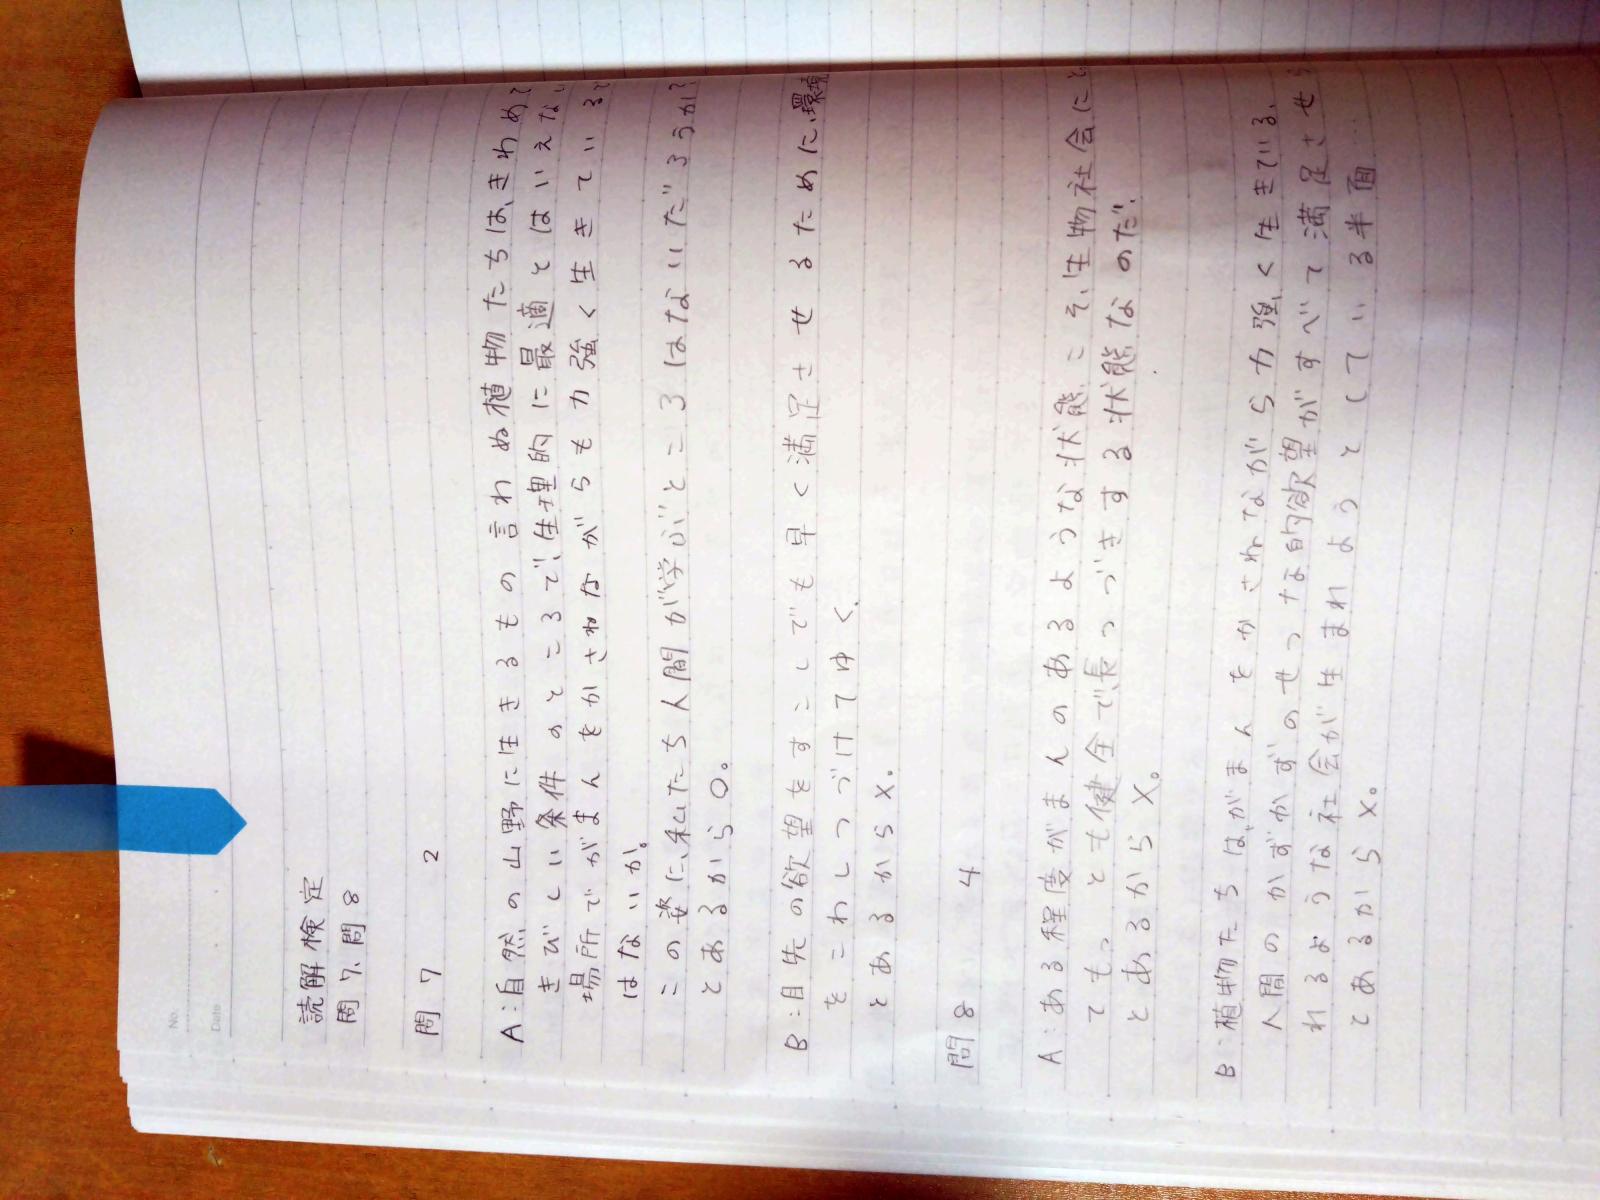 No.
Date
読解検定
問7、問8
問7 2
A:自然の山野に生きるもの言わぬ植物たちは、きわめて
きびしい条件のところで、生理的に最適とはいえない
場所でがまんをかさねながらも力強く生きているで
はないか。
この姿に、私たち人間が学ぶところはないいだろうか?
とあるから○。
B:目先の欲望をすこしでも早く満足させるために、環境
をこわしつづけてゆく。
とあるから×。
問8 4
A:ある程度がまんのあるような状態こそ、生物社会にと
てもっとも健全で、長つづきする状態なのだ。
とあるから×。
B:植物たちは、がまんをかさねながら力強く生きている。
人間のかずかずのせつな的欲望がすべて満足させら
れるような社会が生まれようとしている半面…
とあるから×。